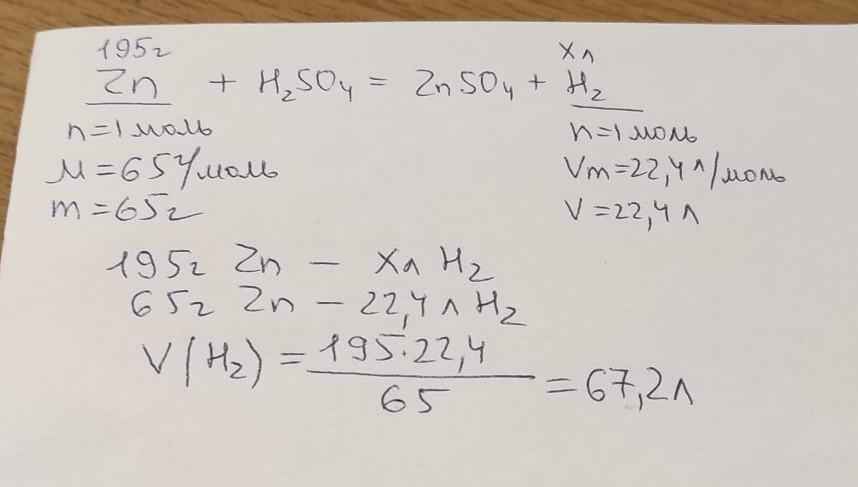 195г хл
Zn + H₂SO₄ = ZnSO₄ + H₂
n=1 моль n=1 моль
M=65г/моль Vm=22,4 л/моль
m=65г V=22,4 л
195г Zn – хл H₂
65г Zn – 22,4 л H₂
V(H₂) = 195·22,4 / 65 = 67,2л